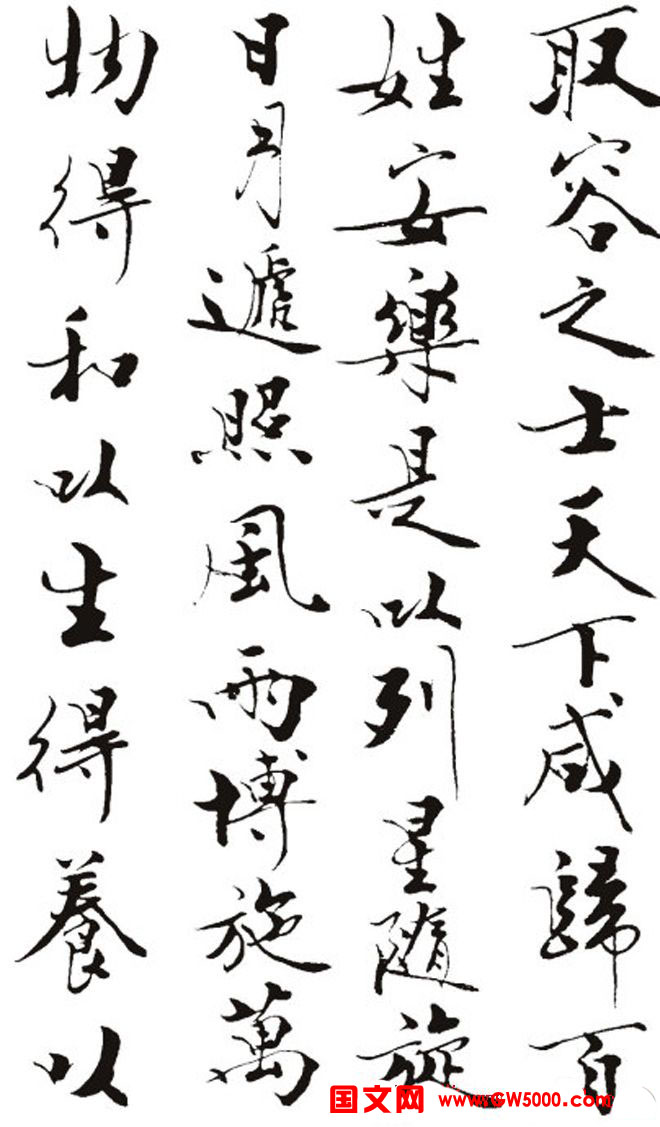 取容之士天下咸歸百
姓安樂是以列星隨旋
日月遞照風雨博施萬
物得和以生得養以
国文网 www.GW5000.com